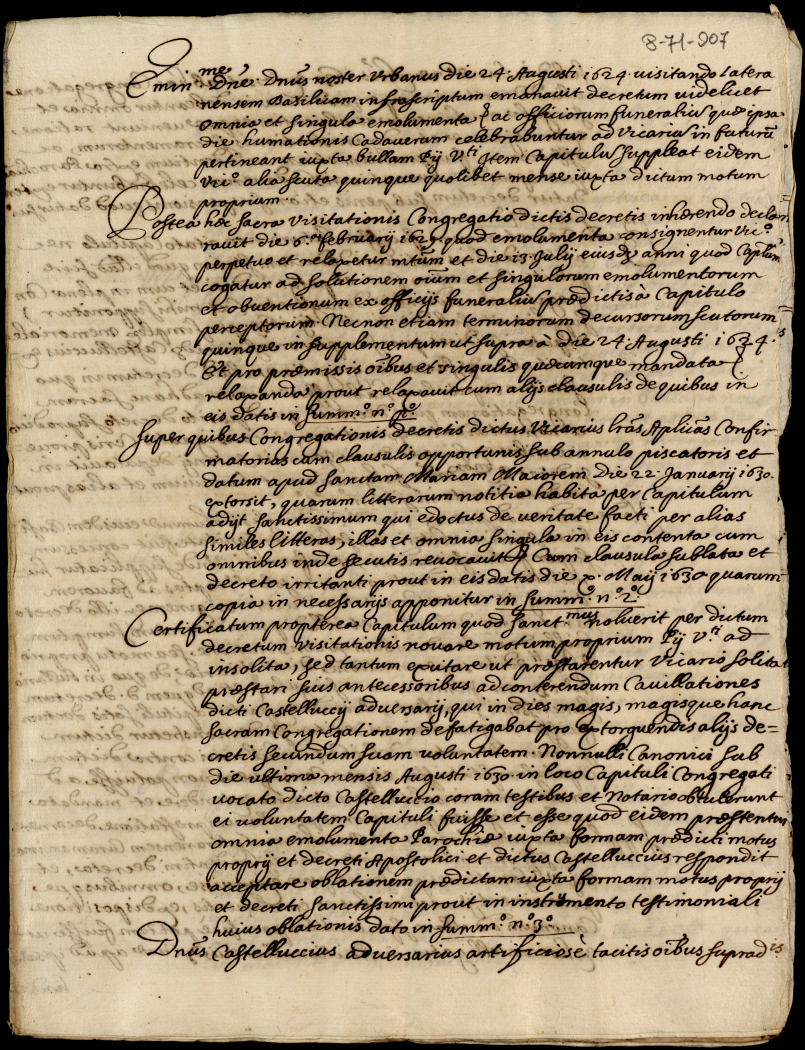 8-71-907
Emin.me Dne. Dnus noster Urbanus die 24. Augusti 1624. visitando Latera
nensem Basilicam infrascriptum emanavit decretum videlicet
omnia et singula emolumenta ac officiorum funeraliũ quæ ipsa
die humationis Cadaverum celebrabuntur ad Vicariũ in futurũ
pertineant iuxta bullam Pij V.ti Item Capitulũ suppleat eidem
Vic.o alia scuta quinque quolibet mense iuxta dictum motum
proprium.
Postea hæc sacra Visitationis Congregatio dictis decretis inhærendo decla
ravit die 6.a februarij 1627. quod emolumenta consignentur Vic.o
perpetuo et relaxetur mtũm et die 13. Julij eiusdẽ anni quod Cap̃lum
cogatur ad solutionem oĩum et singulorum emolumentorum
et obventionum ex officijs funeraliũ prædictis à Capitulo
perceptorum. Necnon etiam terminorum decursorum scutorum
quinque in supplementum ut supra à die 24. Augusti 1624.
Et pro præmissis oĩbus et singulis quæcumque mandata
relaxanda prout relaxavit cum alijs clausulis de quibus in
eis datis in summ.o n.o p.o
Super quibus Congregationis decretis dictus Vicarius lr̃as Ap̃licas Confir
matorias cum clausulis opportunis sub annulo piscatoris et
datum apud sanctam Mariam Maiorem die 22. Januarij 1630.
extorsit, quarum litterarum notitia habita per Capitulum
adijt sanctissimum qui edoctus de veritate facti per alias
similes litteras, illas et omnia singula in eis contenta cum
omnibus inde secutis revocavit Cum clausula sublata et
decreto irritanti prout in eis datis die x. Maij 1630 quarum
copia in necessarijs apponitur in summ.o n.o 2.o
Certificatum propterea Capitulum quod sanct.mus noluerit per dictum
decretum visitationis novare motum proprium Pij V.ti ad
insolita, sed tantum exutare ut præstarentur Vicario solita
præstari suis antecessoribus ad conterendum Cavillationes
dicti Castelluccij adversarij, qui in dies magis, magisque hanc
sacram Congregationem defatigabat pro extorquendis alijs de=
cretis secundum suam voluntatem. Nonnulli Canonici sub
die ultima mensis Augusti 1630. in loco Capituli Congregati
vocato dicto Castelluccio coram testibus et Notario obtulerunt
ei voluntatem Capituli fuisse et esse quod eidem præstentur
omnia emolumenta Parochiæ iuxta formam prædicti motus
proprij et decreti Apostolici et dictus Castelluccius respondit
acceptare oblationem prædictam iuxta formam motus proprij
et decreti sanctissimi prout in instrumento testimoniali
huius oblationis dato in summ.o n.o 3.o
Dnũs Castelluccius adversarius artificiosè tacitis oĩbus suprad.is